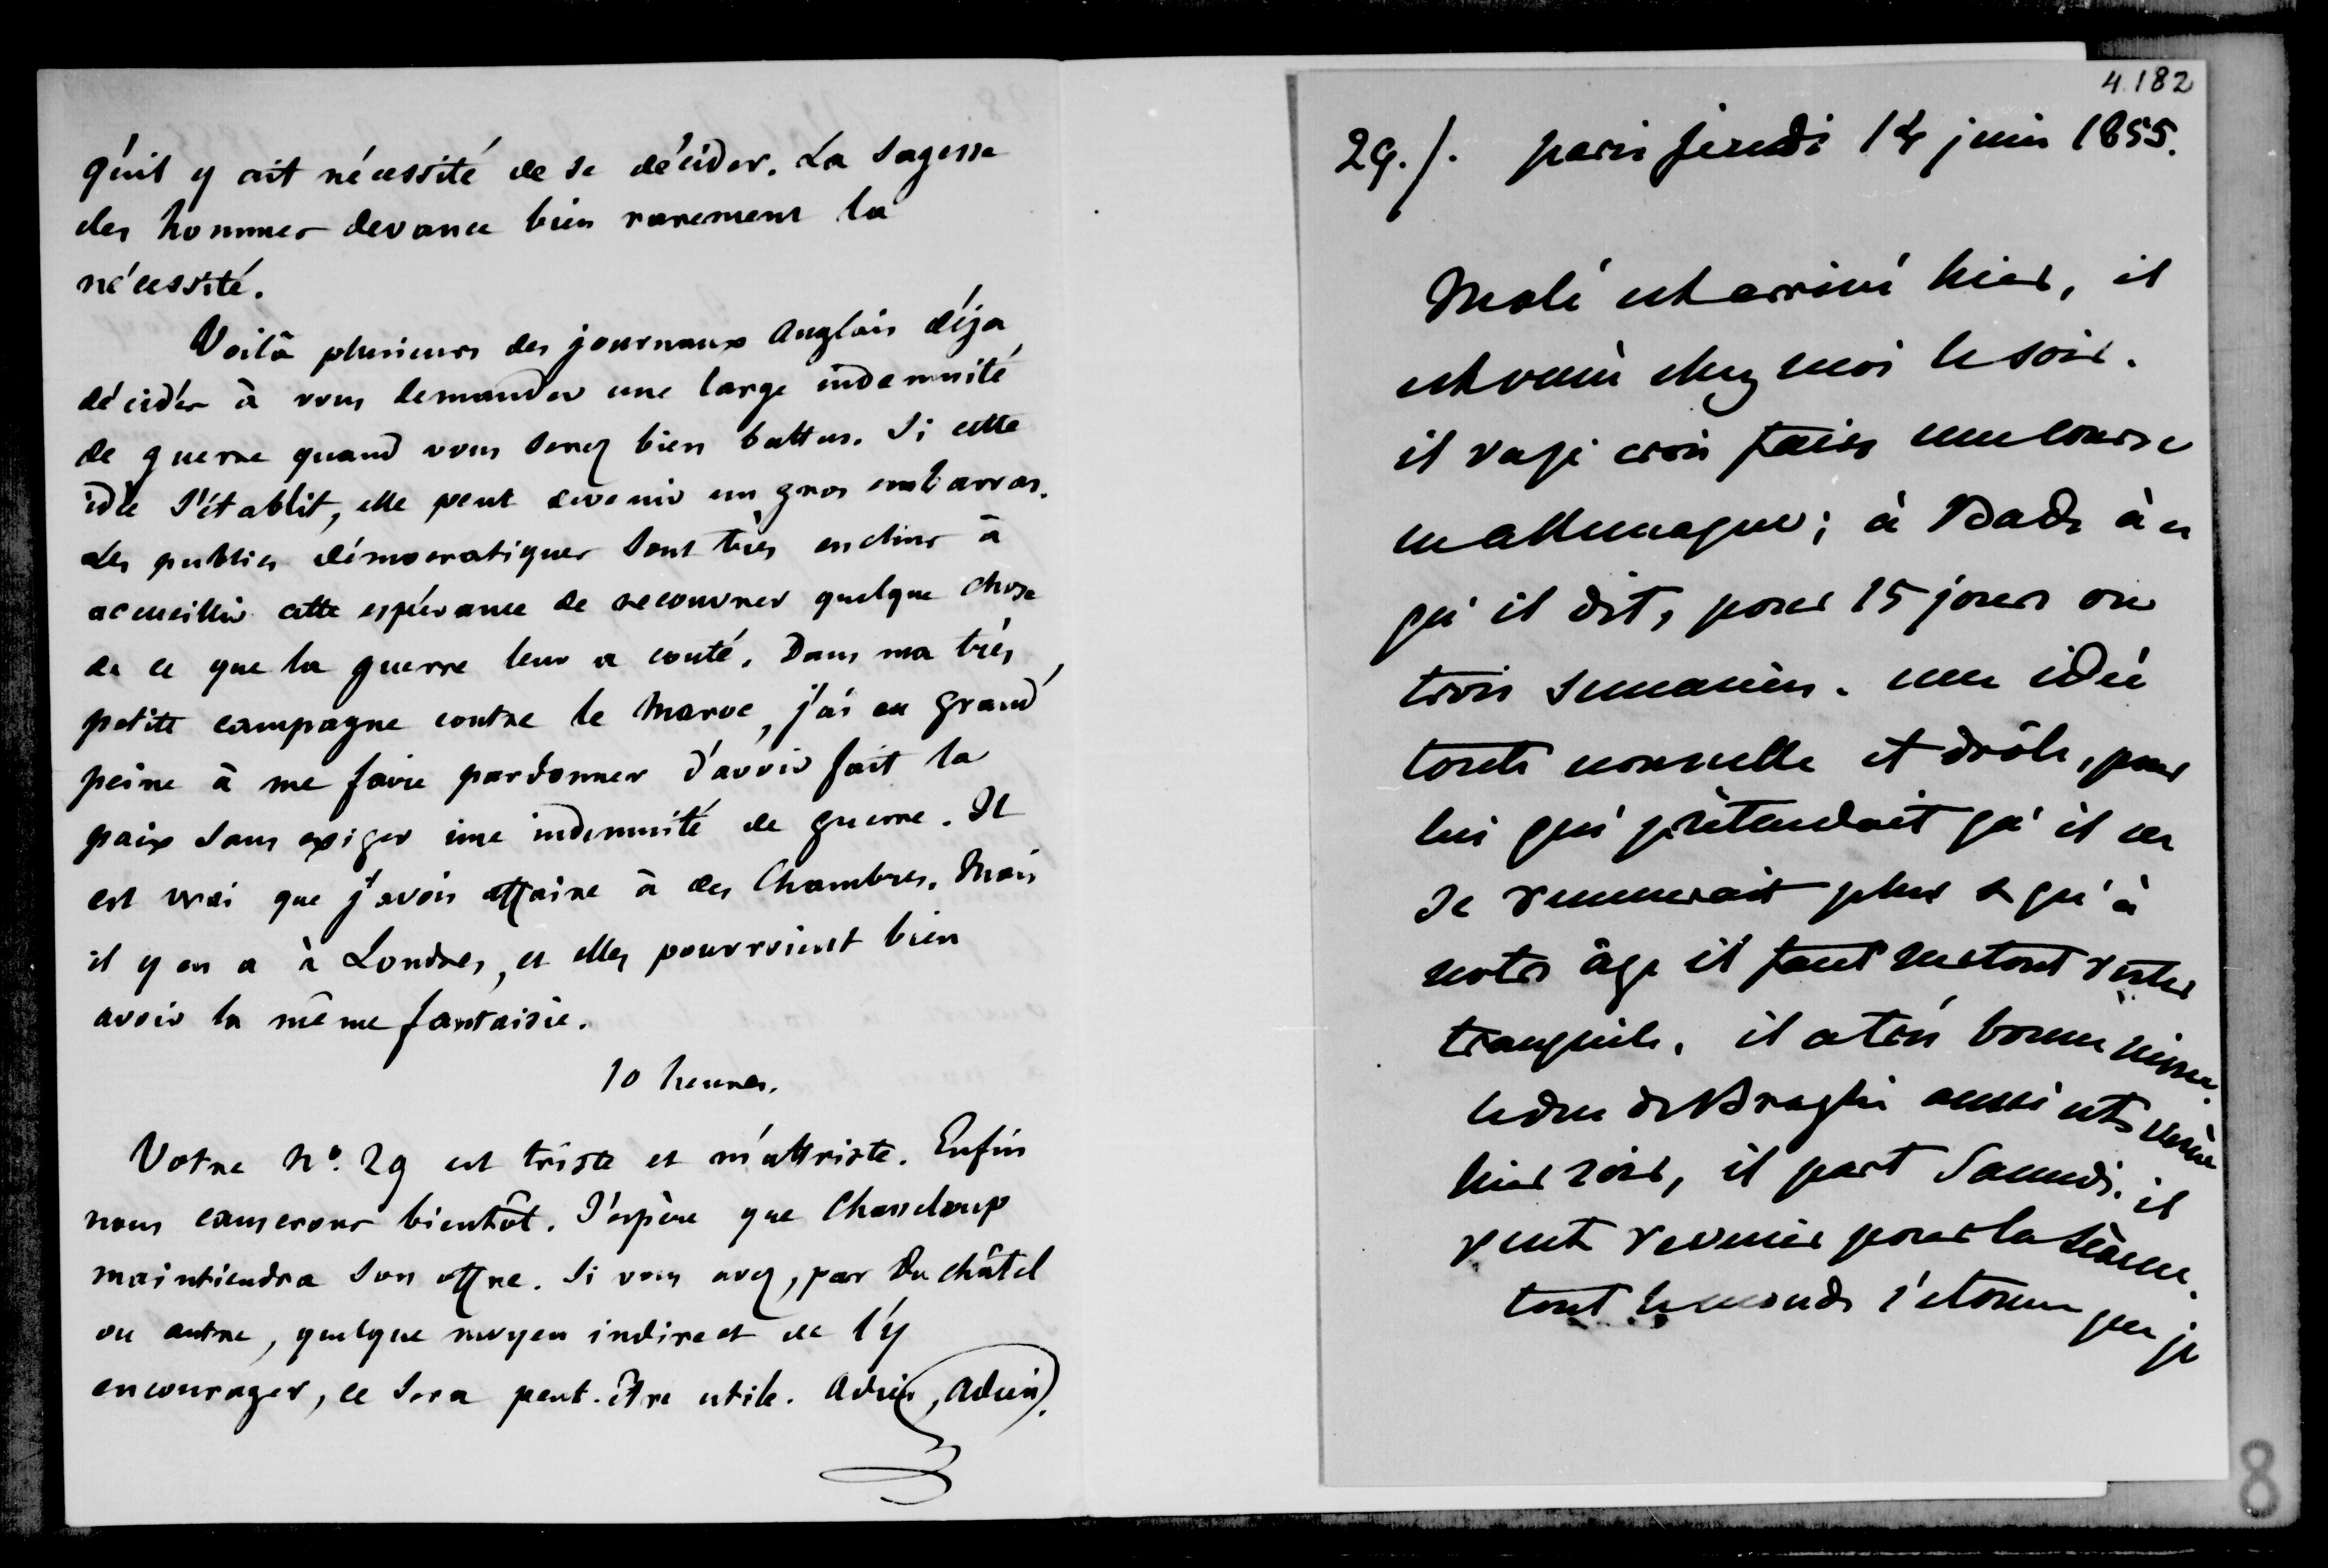 qu'il y ait nécessité de se décider. La sagesse
des hommes devance bien rarement la
nécessité.
Voilà plusieurs des journaux Anglais déja
décidés à vous demander une large indemnité
de guerre quand vous serez bien battus. Si cette
idée s'établit, elle peut devenir un gros embarras.
Les publics démocratiques sont très enclins à
accueillir cette espérance de recouvrer quelque chose
de ce que la guerre leur a couté. Dans ma très
petite campagne contre le Maroc, j'ai eu grand'
peine à me faire pardonner d'avoir fait la
paix sans exiger une indemnité de guerre. Il
est vrai que j'avois affaire à des Chambres. Mais
il y en a à Londres, et elles pourroient bien
avoir la même fantaisie.
10 heures.
Votre N°. 29 est triste et m'attriste. Enfin
nous causerons bientôt. J'espère que Chasseloup
maintiendra son offre. Si vous avez, par Duchâtel
ou autre, quelque moyen indirect de l'y
encourager, ce sera peut-être utile. Adieu, Adieu.
4182
29./. paris jeudi 14 juin 1855.
Molé est arrivé hier, il
est venu chez moi le soir.
il va je crois faire une course
en allemagne; à Bade à ce
qu'il dit, pour 15 jours ou
trois semaines. une idée
toute nouvelle et drôle, pour
lui qui prétendait qu'il ne
se remuerait plus & qu'à
notre âge il faut surtout rester
tranquile. il a très bonne mine.
le duc de Broglie aussi est venu
hier soir, il part Samedi. il
veut revenir pour la séance.
tout le monde s'étonne que je
8